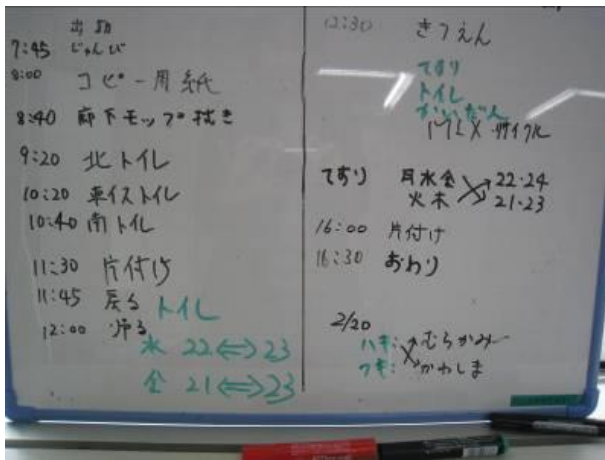 出勤
7:45 じゅんび
8:00 コピー用紙
8:40 廊下モップ拭き
9:20 北トイレ
10:20 車イストイレ
10:40 南トイレ
11:30 片付け
11:45 戻る
12:00 帰る
トイレ
水 22⇔23
金 21⇔23
12:30 きつえん
てすり
トイレ
かいだん
リサイクル
てすり 月水金 22・24
火木 21・23
16:00 片付け
16:30 おわり
2/20
ハキ: むらかみ
フキ: かわしま